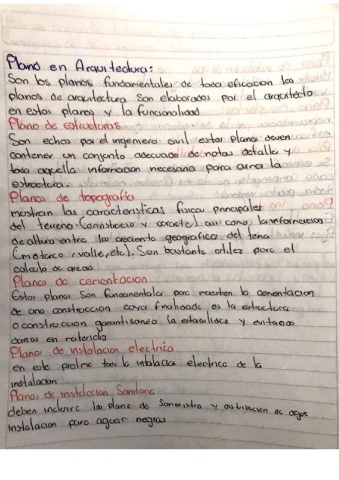 Plano en Arquitectura:
Son los planos fundamentales de toda eficacion los
planos de arquitectura Son elaborados por el arquitecto
en estos planos y la funcionalidad
Plano de estructuras
Son echos por el ingeniero civil estos planos deven
contener un conjunto adecuado de notas detalle y
toda aquella informacion necesaria para arma la
estructura.
Planos de topografia
mostran las caracteristicas fisicas principales
del terreno así como la informacion
de altura entre los geografico del
valle, etc). Son bastante utiles para el
calculo de areas
Plano de cementacion
Estos planos Son fundamentales para la cementacion
de una construccion cuya finalidad es la estructura
o construccion garantizando la estabilidad y evitando
daños en
Planos de instalacion electrica
en este todo la intalacion electrica de la
instalacion
Planos de instalacion Sanitaria
deben incluir los plano de Suministro y distribucion de agua
Instalacion para aguas negras